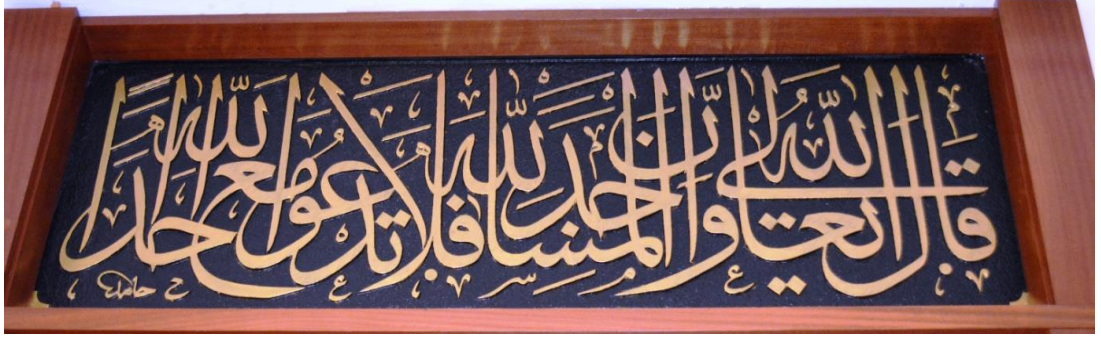 قال الله تعالى وأن المساجد لله فلا تدعوا مع الله أحدا
حامد